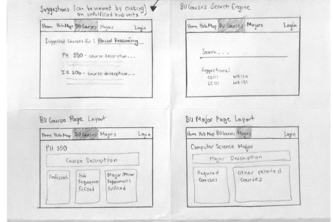 Suggestions (can be viewed by clicking
on unfulfilled hub units)
Home Hub Map BU Courses Majors Login
Suggested Courses for: Moral Reasoning
PH 350 - course description...
- course description...
BU Courses Search Engine
Home Hub Map BU Courses Majors Login
Search...
Suggestions:
BU Course Page Layout
Home Hub Map BU Courses Majors Login
PH 350
Course Description
Professors
Hub Requirements Filled
Major/Minor Requirements Fulfilled
BU Major Page Layout
Home Hub Map BU Courses Majors Login
Computer Science Major
Major Description
Required Courses
Other related Courses